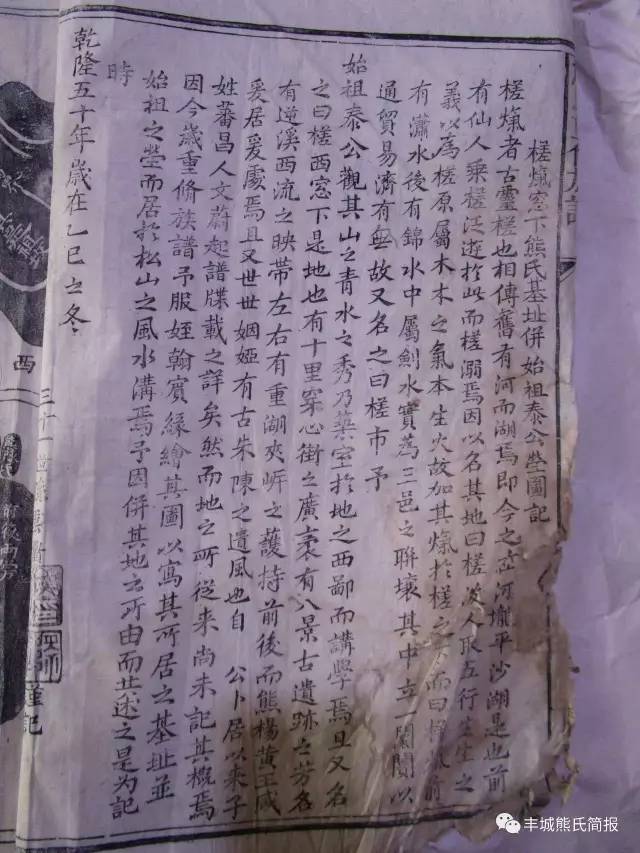 槎㷟窓下熊氏基址併始祖泰公塋圖記
槎㷟者古靈槎也相傳舊有河而湖焉即今之苙河壠平沙湖是也前
有仙人乘槎泛遊於此而槎溺焉因以名其地曰槎後人取五行生生之
義以為槎原屬木木之氣本生火故加其㷟於槎之下而曰槎㷟前
有瀟水後有錦水中屬劍水實為三邑之聨壤其中立一闤闠以
通貿易濟有無故又名之曰槎市予
始祖泰公觀其山之青水之秀乃築室於地之西鄙而講學焉且又名
之曰槎西窓下是地也有十里穿心街之廣袤有八景古遺跡之芳名
有逆溪西流之映帶左右有重湖夾㟁之護持前後而熊楊黃王咸
爰居爰處焉且又世世姻婭有古朱陳之遺風也自 公卜居以來子
姓蕃昌人文蔚起譜牒載之詳矣然而地之所從来尚未記其概焉
因今歲重脩族譜予服姪翰賓緣繪其圖以寫其所居之基址並
始祖之塋而居於松山之風水溝焉予因併其地之所由而並述之是为記
時
乾隆五十年歲在乙巳之冬
三十一
謹記
西
丰城熊氏简报